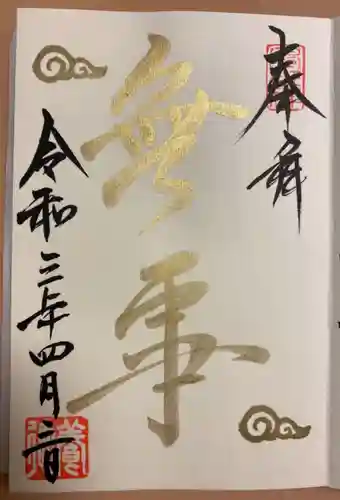 奉拝
無事
令和三年四月三日